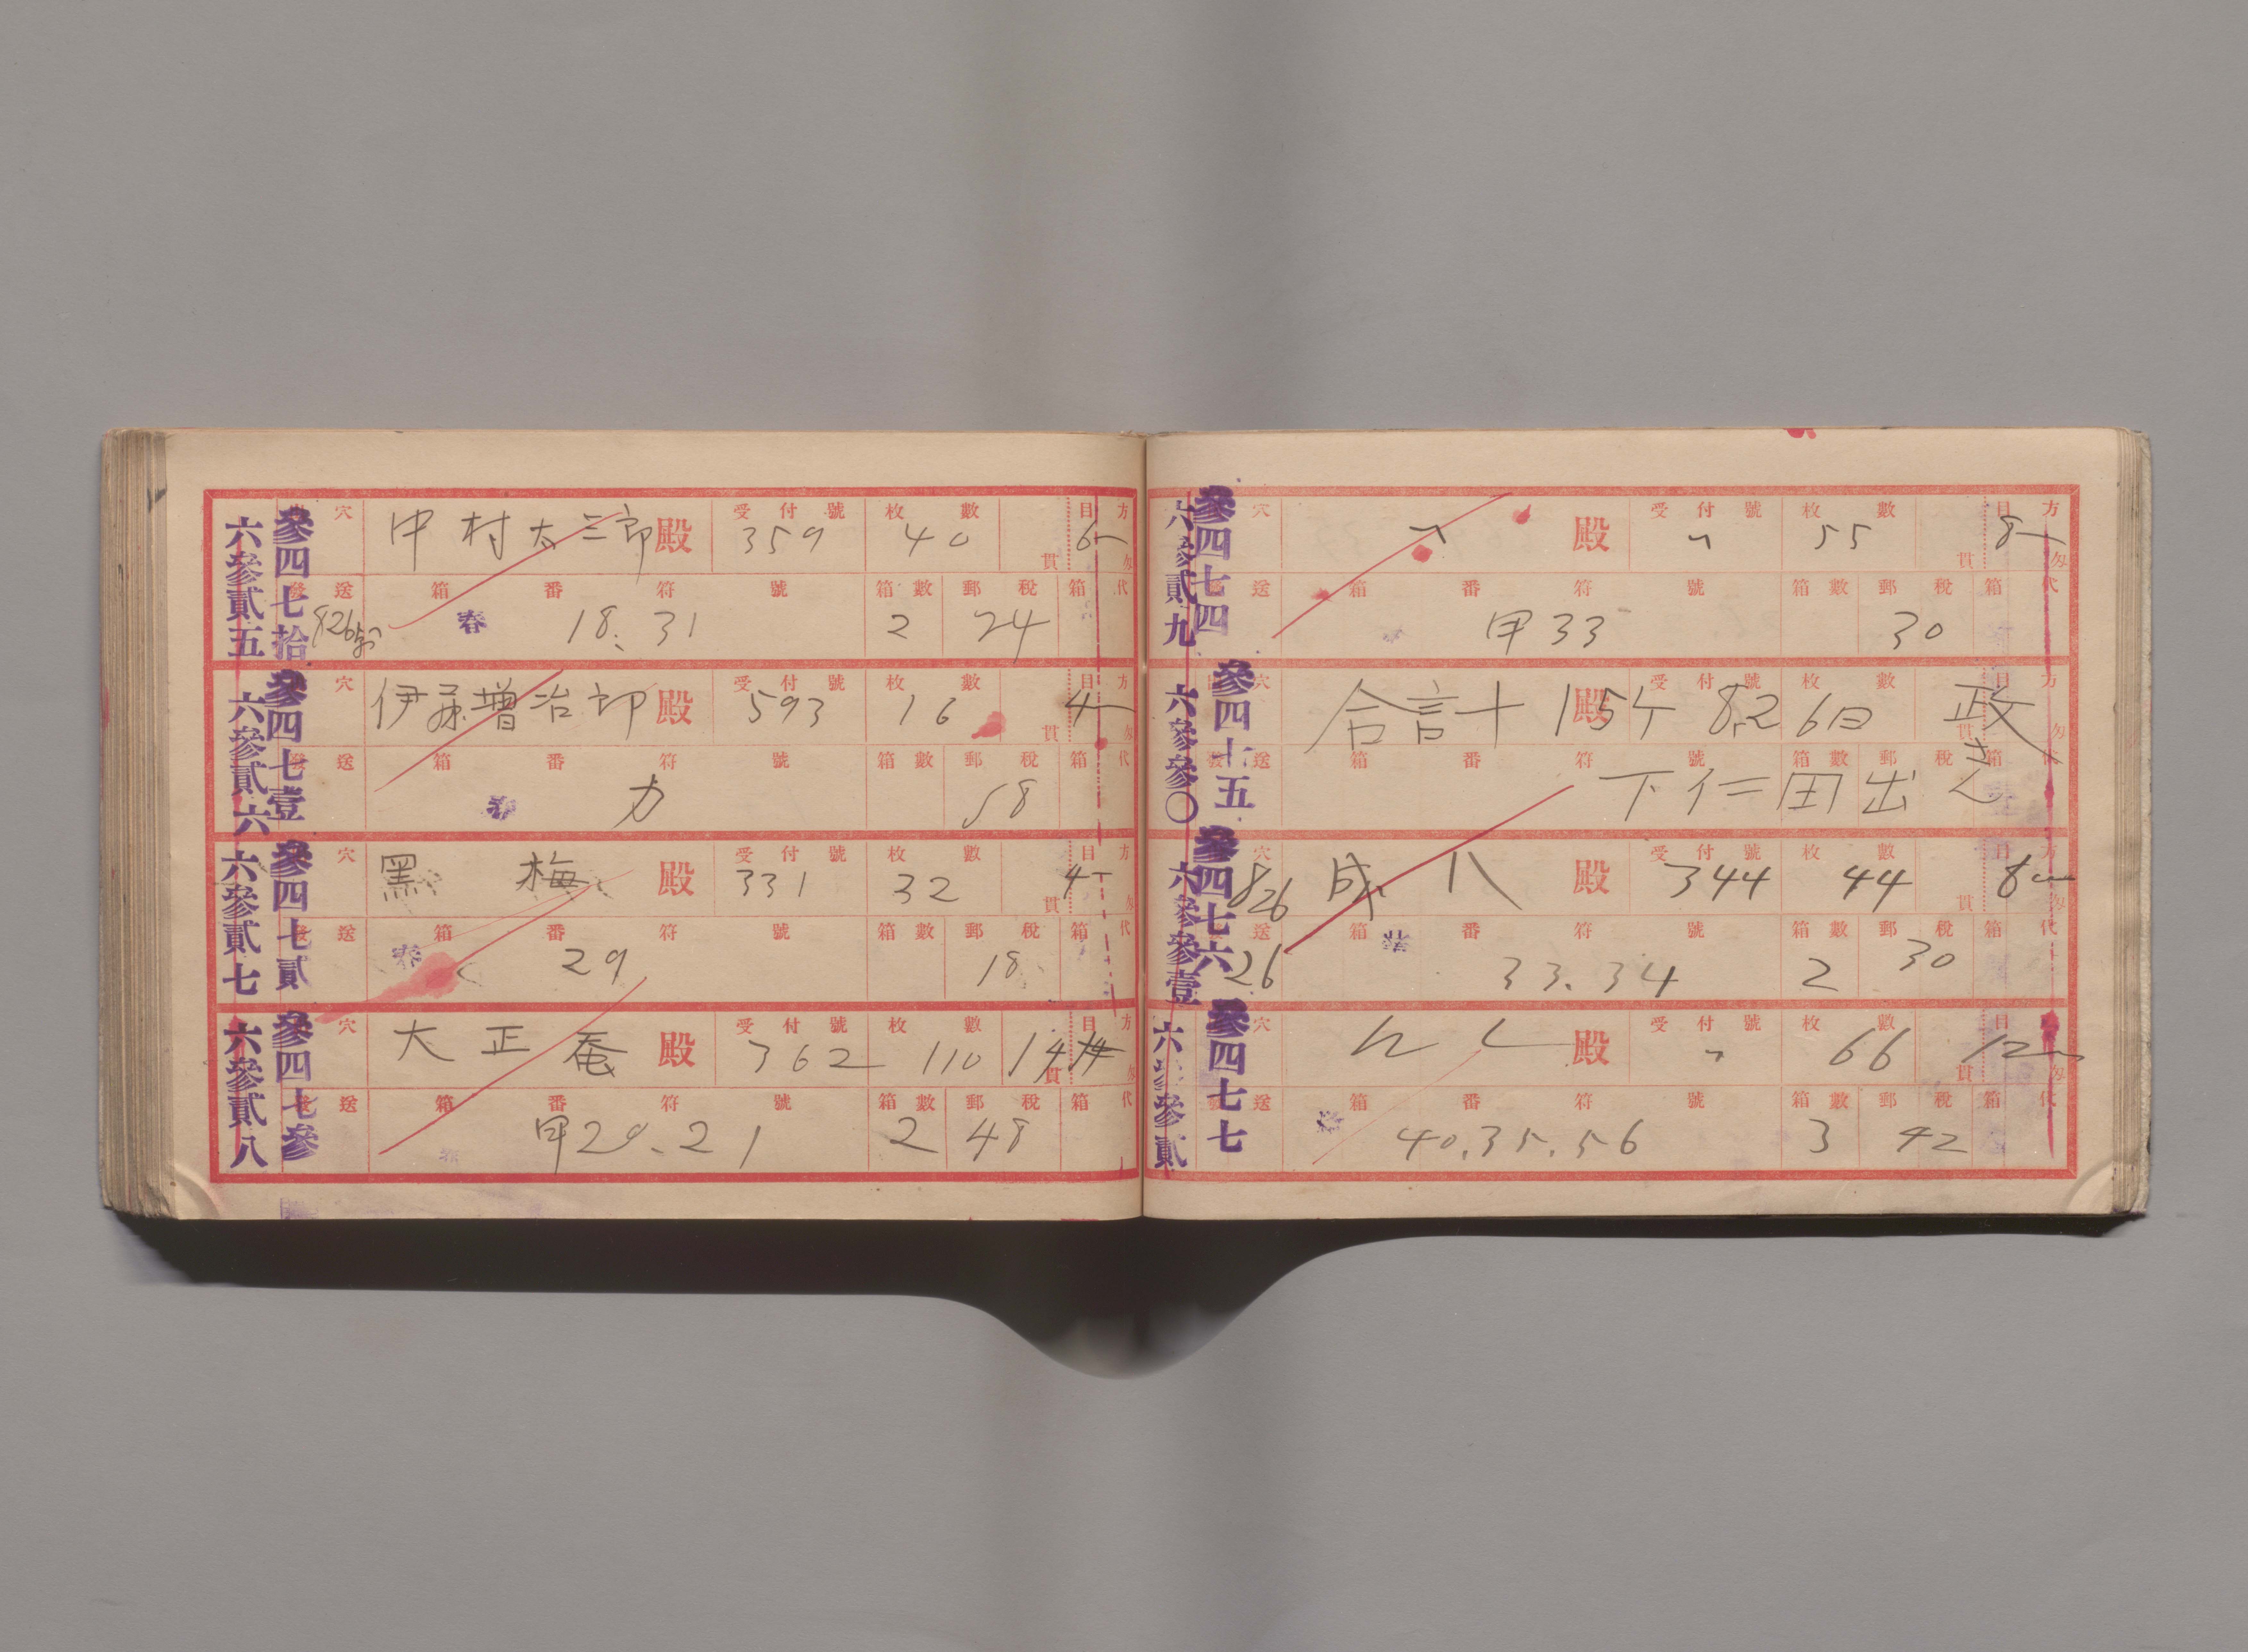 六參貳五 參四七拾
穴 中村太三郎 殿 受付號 359 枚數 40 貫 目方 6 匁
送 826 箱番符號 春 18、31 箱數 2 郵稅 24 箱代
六參貳六 參四七壹
穴 伊藤増治郎 殿 受付號 593 枚數 16 貫 目方 4 匁
發送 箱番符號 春 力 箱數 郵稅 18 箱代
六參貳七 參四七貳
穴 黑梅 殿 受付號 331 枚數 32 貫 目方 4 匁
發送 箱番符號 春 29 箱數 郵稅 18 箱代
六參貳八 參四七參
穴 大正菴 殿 受付號 362 枚數 110 貫 14 目方 匁
發送 箱番符號 甲29、21 箱數 2 郵稅 48 箱代
六參貳九 參四七四
穴 〃 殿 受付號 〃 枚數 55 貫 目方 8 匁
送 箱番符號 甲33 箱數 郵稅 30 箱代
六參參〇 參四七五
穴 合計十15ケ 殿 受付號 8,26日 枚數 政 貫 目方 匁
發送 箱番符號 下仁田出 箱數 郵稅 箱代
六參參壹 參四七六
穴 826 成八 殿 受付號 344 枚數 44 貫 目方 8 匁
送 26 箱番符號 33、34 箱數 2 郵稅 30 箱代
六參參貳 參四七七
穴 殿 受付號 〃 枚數 66 貫 目方 12 匁
送 箱番符號 春 40、35、56 箱數 3 郵稅 42 箱代